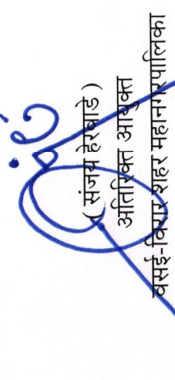 ( संजय हेरवाडे )
अतिरिक्त आयुक्त
वसई-विरार शहर महानगरपालिका